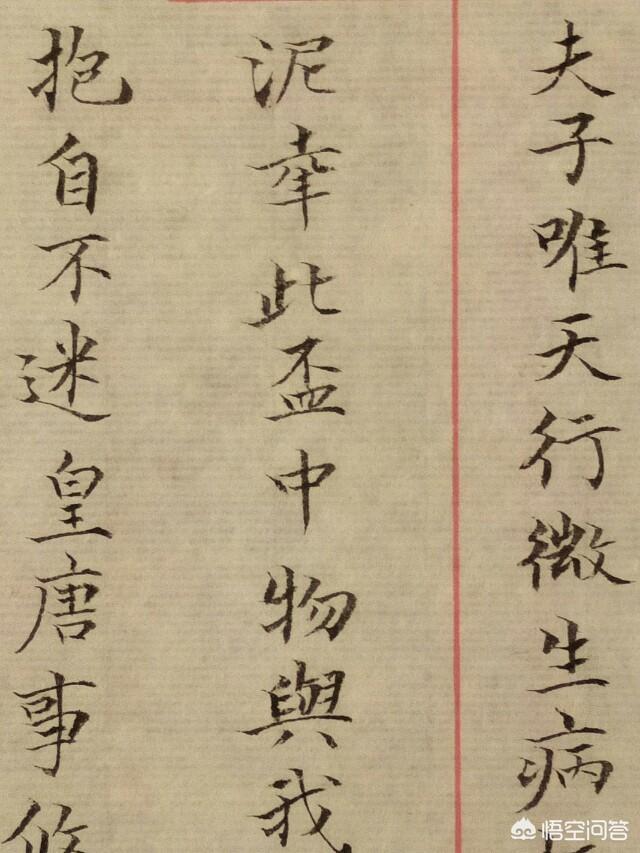 夫子唯天行微生病
泥幸此盃中物與我
抱自不迷皇唐事修
悟空问答